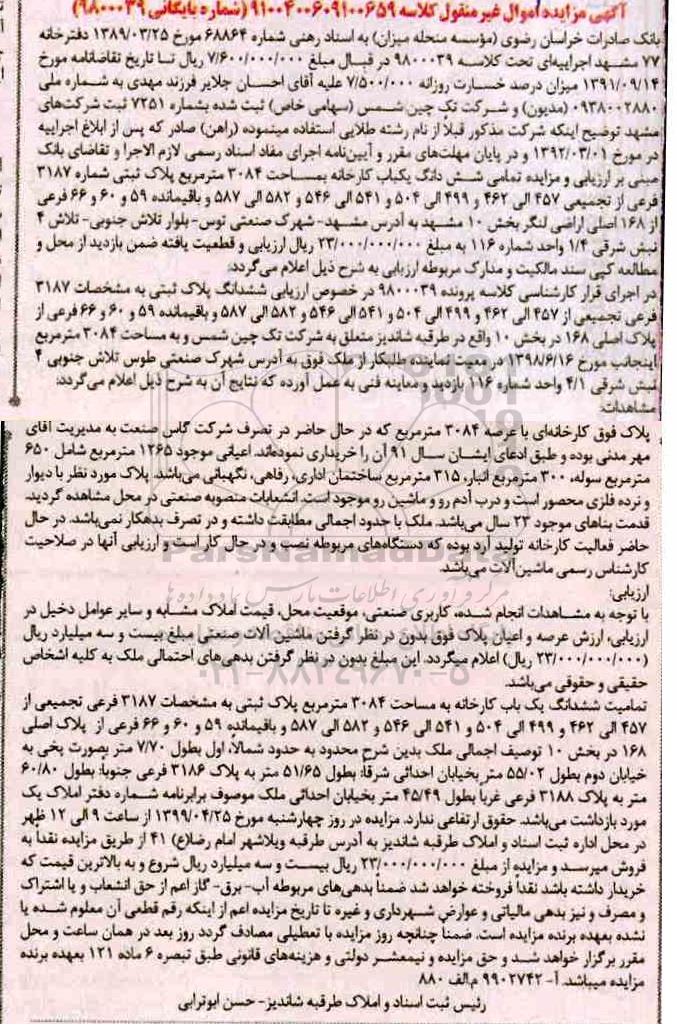 آگهی مزایده اموال غیر منقول کلاسه ۹۱۰۰۴۰۰۶۰۹۱۰۰۶۵۹ (شماره بایگانی ۹۸۰۰۰۳۹)
بانک صادرات خراسان رضوی (مؤسسه منحله میزان) به اسناد رهنی شماره ۶۸۸۶۴ مورخ ۱۳۸۹/۰۳/۲۵ دفترخانه
۷۷ مشهد اجراییه‌ای تحت کلاسه ۹۸۰۰۰۳۹ در قبال مبلغ ۷/۶۰۰/۰۰۰/۰۰۰ ریال تا تاریخ تقاضانامه مورخ
۱۳۹۱/۰۹/۱۴ میزان درصد خسارت روزانه ۷/۵۰۰/۰۰۰ علیه آقای احسان جلایر فرزند مهدی به شماره ملی
۰۹۳۸۰۰۲۸۸۰ (مدیون) و شرکت تک چین شمس (سهامی خاص) ثبت شده بشماره ۷۲۵۱ ثبت شرکت‌های
مشهد توضیح اینکه شرکت مذکور قبلاً از نام رشته طلایی استفاده مینموده (راهن) صادر که پس از ابلاغ اجراییه
در مورخ ۱۳۹۲/۰۳/۰۱ و در پایان مهلت‌های مقرر و آیین‌نامه اجرای مفاد اسناد رسمی لازم الاجرا و تقاضای بانک
مبنی بر ارزیابی و مزایده تمامی شش دانگ یکباب کارخانه بمساحت ۳۰۸۴ مترمربع پلاک ثبتی شماره ۳۱۸۷
فرعی از تجمیعی ۴۵۷ الی ۴۶۲ و ۴۹۹ الی ۵۰۴ و ۵۴۱ الی ۵۴۶ و ۵۸۲ الی ۵۸۷ و باقیمانده ۵۹ و ۶۰ و ۶۶ فرعی
از ۱۶۸ اصلی اراضی لنگر بخش ۱۰ مشهد به آدرس مشهد- شهرک صنعتی توس- بلوار تلاش جنوبی- تلاش ۴
نبش شرقی ۱/۴ واحد شماره ۱۱۶ به مبلغ ۲۳/۰۰۰/۰۰۰/۰۰۰ ریال ارزیابی و قطعیت یافته ضمن بازدید از محل و
مطالعه کپی سند مالکیت و مدارک مربوطه ارزیابی به شرح ذیل اعلام می‌گردد:
در اجرای قرار کارشناسی کلاسه پرونده ۹۸۰۰۰۳۹ در خصوص ارزیابی ششدانگ پلاک ثبتی به مشخصات ۳۱۸۷
فرعی تجمیعی از ۴۵۷ الی ۴۶۲ و ۴۹۹ الی ۵۰۴ و ۵۴۱ الی ۵۴۶ و ۵۸۲ الی ۵۸۷ و باقیمانده ۵۹ و ۶۰ و ۶۶ فرعی از
پلاک اصلی ۱۶۸ در بخش ۱۰ واقع در طرقبه شاندیز متعلق به شرکت تک چین شمس و به مساحت ۳۰۸۴ مترمربع
اینجانب مورخ ۱۳۹۸/۶/۱۶ در معیت نماینده طلبکار از ملک فوق به آدرس شهرک صنعتی طوس تلاش جنوبی ۴
نبش شرقی ۴/۱ واحد شماره ۱۱۶ بازدید و معاینه فنی به عمل آورده که نتایج آن به شرح ذیل اعلام می‌گردد:
مشاهدات:
پلاک فوق کارخانه‌ای با عرصه ۳۰۸۴ مترمربع که در حال حاضر در تصرف شرکت گاس صنعت به مدیریت آقای
مهر مدنی بوده و طبق ادعای ایشان سال ۹۱ آن را خریداری نموده‌اند. اعیانی موجود ۱۲۶۵ مترمربع شامل ۶۵۰
مترمربع سوله، ۳۰۰ مترمربع انبار، ۳۱۵ مترمربع ساختمان اداری، رفاهی، نگهبانی می‌باشد. پلاک مورد نظر با دیوار
و نرده فلزی محصور است و درب آدم رو و ماشین رو موجود است. انشعابات منصوبه صنعتی در محل مشاهده گردید.
قدمت بناهای موجود ۲۳ سال می‌باشد. ملک با حدود اجمالی مطابقت داشته و در تصرف بدهکار نمی‌باشد. در حال
حاضر فعالیت کارخانه تولید آرد بوده که دستگاه‌های مربوطه نصب و در حال کار است و ارزیابی آنها در صلاحیت
کارشناس رسمی ماشین‌آلات می‌باشد.
ارزیابی:
با توجه به مشاهدات انجام شده، کاربری صنعتی، موقعیت محل، قیمت املاک مشابه و سایر عوامل دخیل در
ارزیابی، ارزش عرصه و اعیان پلاک فوق بدون در نظر گرفتن ماشین آلات صنعتی مبلغ بیست و سه میلیارد ریال
(۲۳/۰۰۰/۰۰۰/۰۰۰ ریال) اعلام میگردد. این مبلغ بدون در نظر گرفتن بدهی‌های احتمالی ملک به کلیه اشخاص
حقیقی و حقوقی می‌باشد.
تمامیت ششدانگ یک باب کارخانه به مساحت ۳۰۸۴ مترمربع پلاک ثبتی به مشخصات ۳۱۸۷ فرعی تجمیعی از
۴۵۷ الی ۴۶۲ و ۴۹۹ الی ۵۰۴ و ۵۴۱ الی ۵۴۶ و ۵۸۲ الی ۵۸۷ و باقیمانده ۵۹ و ۶۰ و ۶۶ فرعی از پلاک اصلی
۱۶۸ در بخش ۱۰ توصیف اجمالی ملک بدین شرح محدود به حدود شمالاً، اول بطول ۷/۷۰ متر بصورت پخی به
خیابان دوم بطول ۵۵/۰۲ متر بخیابان احداثی شرقا: بطول ۵۱/۶۵ متر به پلاک ۳۱۸۶ فرعی جنوبا: بطول ۶۰/۸۰
متر به پلاک ۳۱۸۸ فرعی غربا بطول ۴۵/۴۹ متر بخیابان احداثی ملک موصوف برابرنامه شماره دفتر املاک یک
مورد بازداشت می‌باشد. حقوق ارتفاعی ندارد. مزایده در روز چهارشنبه مورخ ۱۳۹۹/۰۴/۲۵ از ساعت ۹ الی ۱۲ ظهر
در محل اداره ثبت اسناد و املاک طرقبه شاندیز به آدرس طرقبه ویلاشهر امام رضا(ع) ۴۱ از طریق مزایده نقداً به
فروش میرسد و مزایده از مبلغ ۲۳/۰۰۰/۰۰۰/۰۰۰ ریال بیست و سه میلیارد ریال شروع و به بالاترین قیمت که
خریدار داشته باشد نقداً فروخته خواهد شد ضمناً بدهی‌های مربوطه آب- برق- گاز اعم از حق انشعاب و یا اشتراک
و مصرف و نیز بدهی مالیاتی و عوارض شهرداری و غیره تا تاریخ مزایده اعم از اینکه رقم قطعی آن معلوم شده یا
نشده بعهده برنده مزایده است. ضمناً چنانچه روز مزایده با تعطیلی مصادف گردد روز بعد در همان ساعت و محل
مقرر برگزار خواهد شد و حق مزایده و نیمعشر دولتی و هزینه‌های قانونی طبق تبصره ۶ ماده ۱۲۱ بعهده برنده
مزایده میباشد. آ- ۹۹۰۲۷۴۲ م.الف ۸۸۰
رئیس ثبت اسناد و املاک طرقبه شاندیز- حسن ابوترابی
ParsNamadData
مرکز فرآوری اطلاعات پارس نماد داده ها
۰۲۱-۸۸۳۴۹۶۷۰-۵